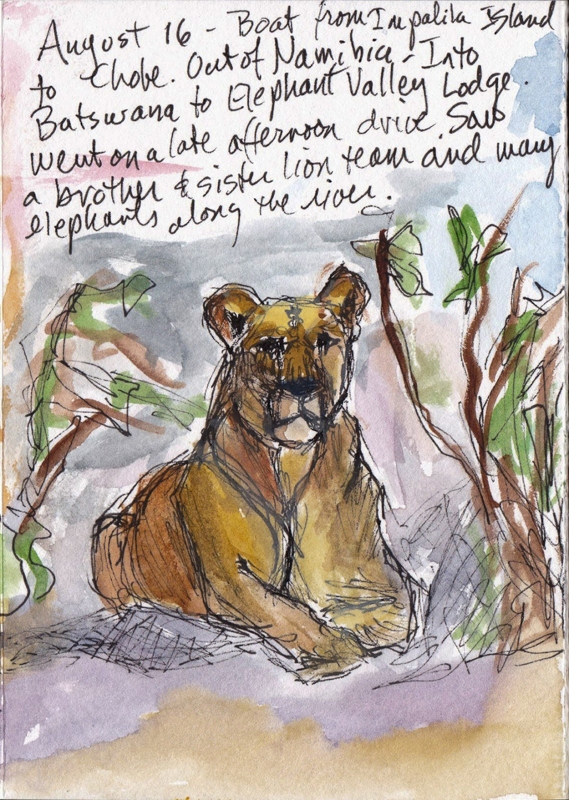 August 16 - Boat from Impalila Island
to Chobe. Out of Namibia - Into
Batswana to Elephant Valley Lodge.
Went on a late afternoon drive. Saw
a brother & sister lion team and many
elephants along the river.